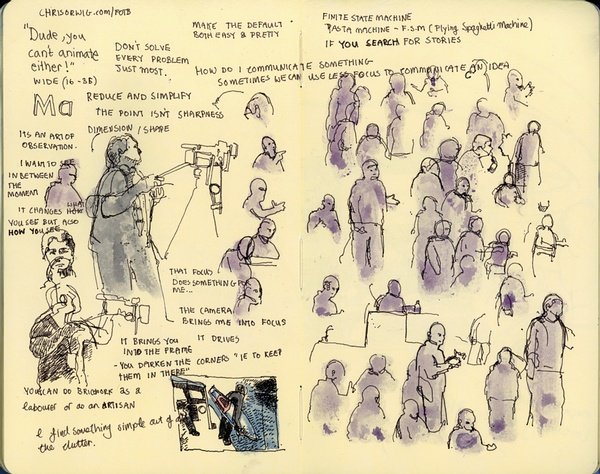 CHRISORWIG.COM/FOTB
"Dude, you
can't animate
either!"
WIDE (16-35)
Ma
MAKE THE DEFAULT
BOTH EASY & PRETTY
DON'T SOLVE
EVERY PROBLEM
JUST MOST.
HOW DO I COMMUNICATE SOMETHING
SOMETIMES WE CAN USE LESS FOCUS TO COMMUNICATE AN IDEA
REDUCE AND SIMPLIFY
THE POINT ISN'T SHARPNESS
DIMENSION / SHAPE
ITS AN ART OF
OBSERVATION.
I WANT TO SEE
IN BETWEEN
THE
MOMENT
IT CHANGES HOW WHAT
YOU SEE BUT ALSO
HOW YOU SEE
THAT FOCUS
DOES SOMETHING FOR
ME...
THE CAMERA
BRINGS ME INTO FOCUS
IT DRIVES
IT BRINGS YOU
INTO THE FRAME
- YOU DARKEN THE CORNERS "IE TO KEEP
THEM IN THERE"
YOU CAN DO BRICKWORK as a
labourer or as an ARTISAN
I find something simple out of
the clutter.
FINITE STATE MACHINE
PASTA MACHINE - F.S.M (Flying Spaghetti Machine)
IF YOU SEARCH FOR STORIES